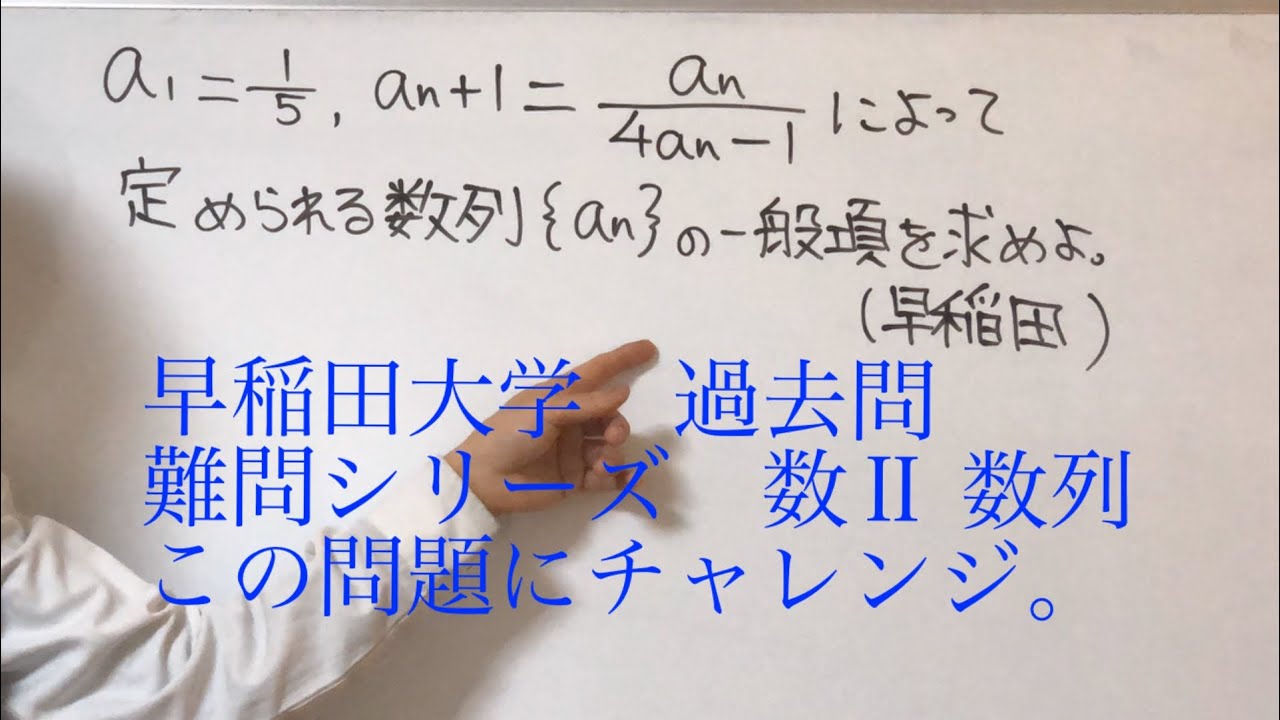 a1 = 1/5, an+1 = an/(4an-1) によって
定められる数列{an}の一般項を求めよ。
(早稲田)
早稲田大学 過去問
難問シリーズ 数Ⅱ 数列
この問題にチャレンジ。